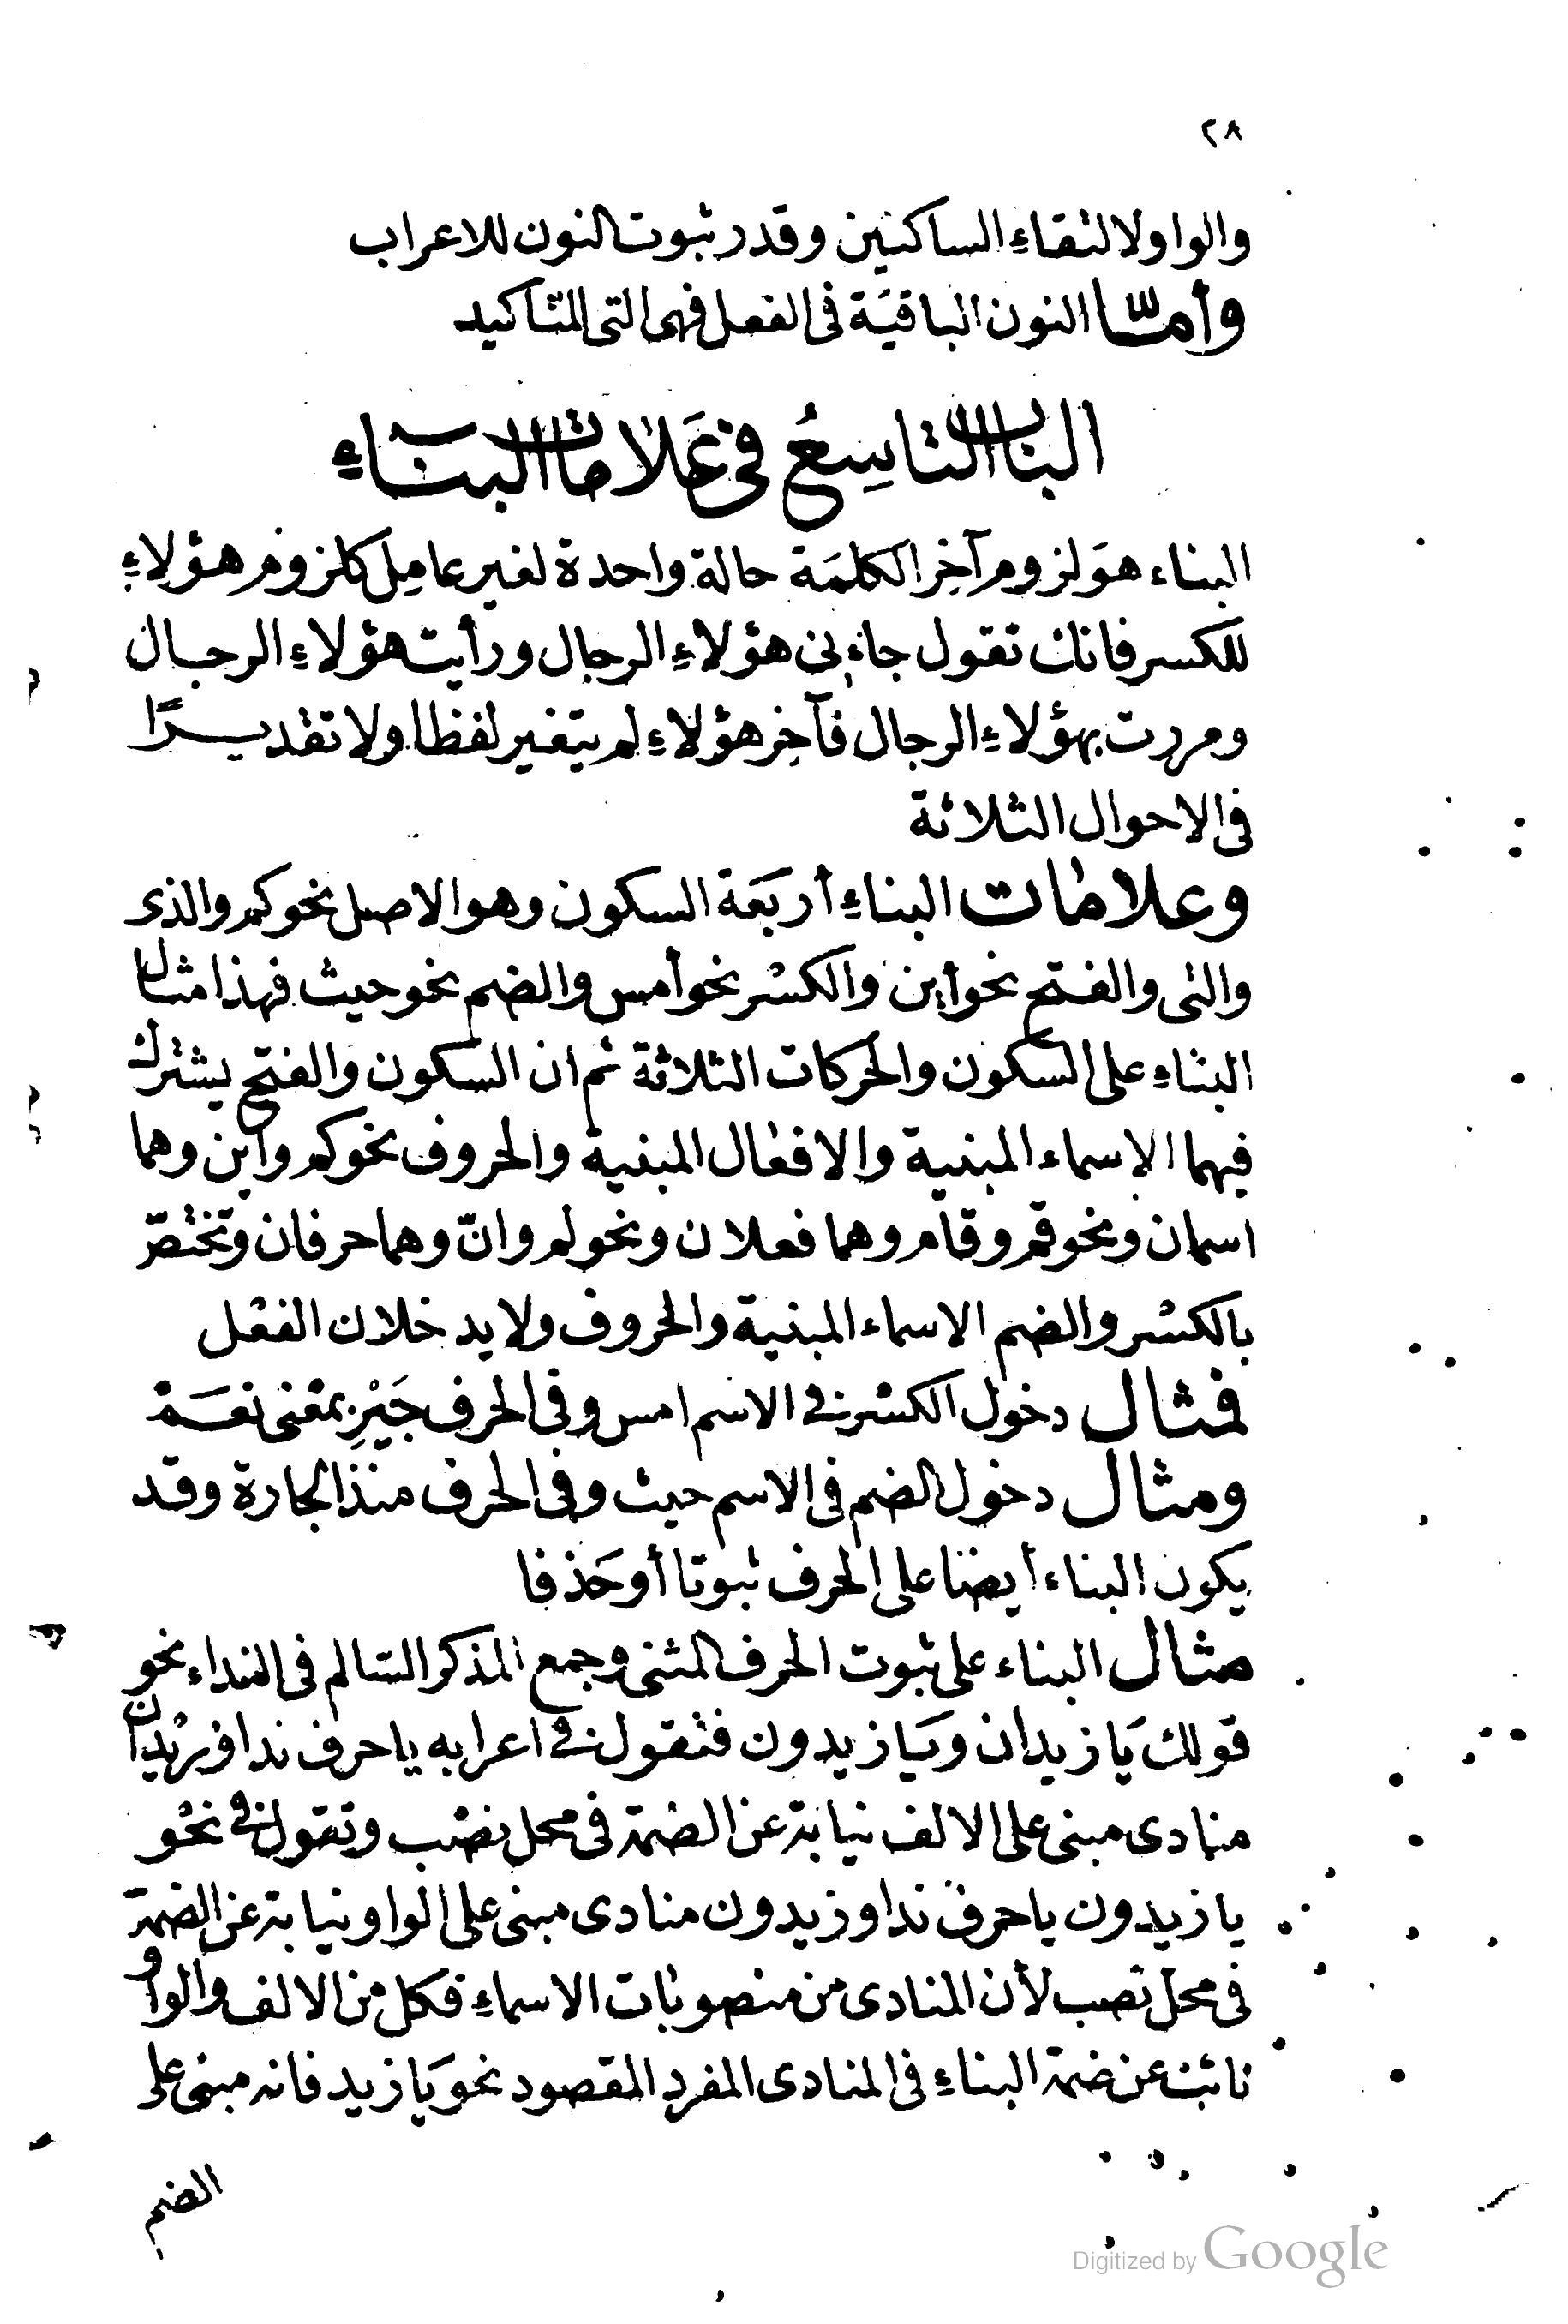 ٢٨
والواو لالتقاءِ الساكنين وقدر ثبوت النون للاعراب
وأمّا النون الباقيَة فى الفعل فهى التى للتأكيد
الباب التاسِعُ فى عَلامات البناءِ
البناء هوَ لزوم آخِر الكلمَة حالة واحدة لغير عامِل كلزوم هؤلاءِ
للكسر فانك تقول جاءنى هؤلاءِ الرجال ورأيت هؤلاءِ الرجال
ومررت بهؤلاءِ الرجال فآخِر هؤلاءِ لم يتغير لفظا ولا تقديرًا
فى الاحوال الثلاثة
وعلامات البناءِ أربعَة السكون وهو الاصل نحو كم والذى
والتى والفتح نحو أين والكسْر نحو أمس والضم نحو حيث فهذا مثال
البناءِ على السكون والحركات الثلاثة ثم ان السكون والفتح يشترك
فيهما الاسماء المبنية والافعال المبنية والحروف نحو كم وأين وهما
اسمان ونحو قم وقام وهما فعلان ونحو لم وانّ وهما حرفان وتختصّ
بالكسْر والضم الاسماء المبنية والحروف ولا يدخلان الفعْل
فمثال دخول الكسْر فى الاسم امس وفى الحرف جَيْرِ بمعْنى نعَمْ
ومثال دخول الضم فى الاسم حيث وفى الحرف منذ الجارة وقد
يكون البناء أيضا على الحرف ثبوتا أو حَذفا
مثال البناء على ثبوت الحرف المثنى وجمع المذكر السالم فى النداء نحو
قولك يَا زيدان ويَا زيدون فتقول فى اعرابه يا حرف ندا وزيْدان
منادى مبنى على الالف نيابة عن الضمة فى محل نصْب وتقول فى نحْو
يا زيدون يا حرف ندا وزيدون منادى مبنى على الواو نيابة عن الضمة
فى محل نصب لأن المنادى من منصوبات الاسماءِ فكل من الالف والواو
نائبْ عن ضمة البناءِ فى المنادى المفرد المقصود نحو يَا زيد فانه مبنى على
الضم
Digitized by Google